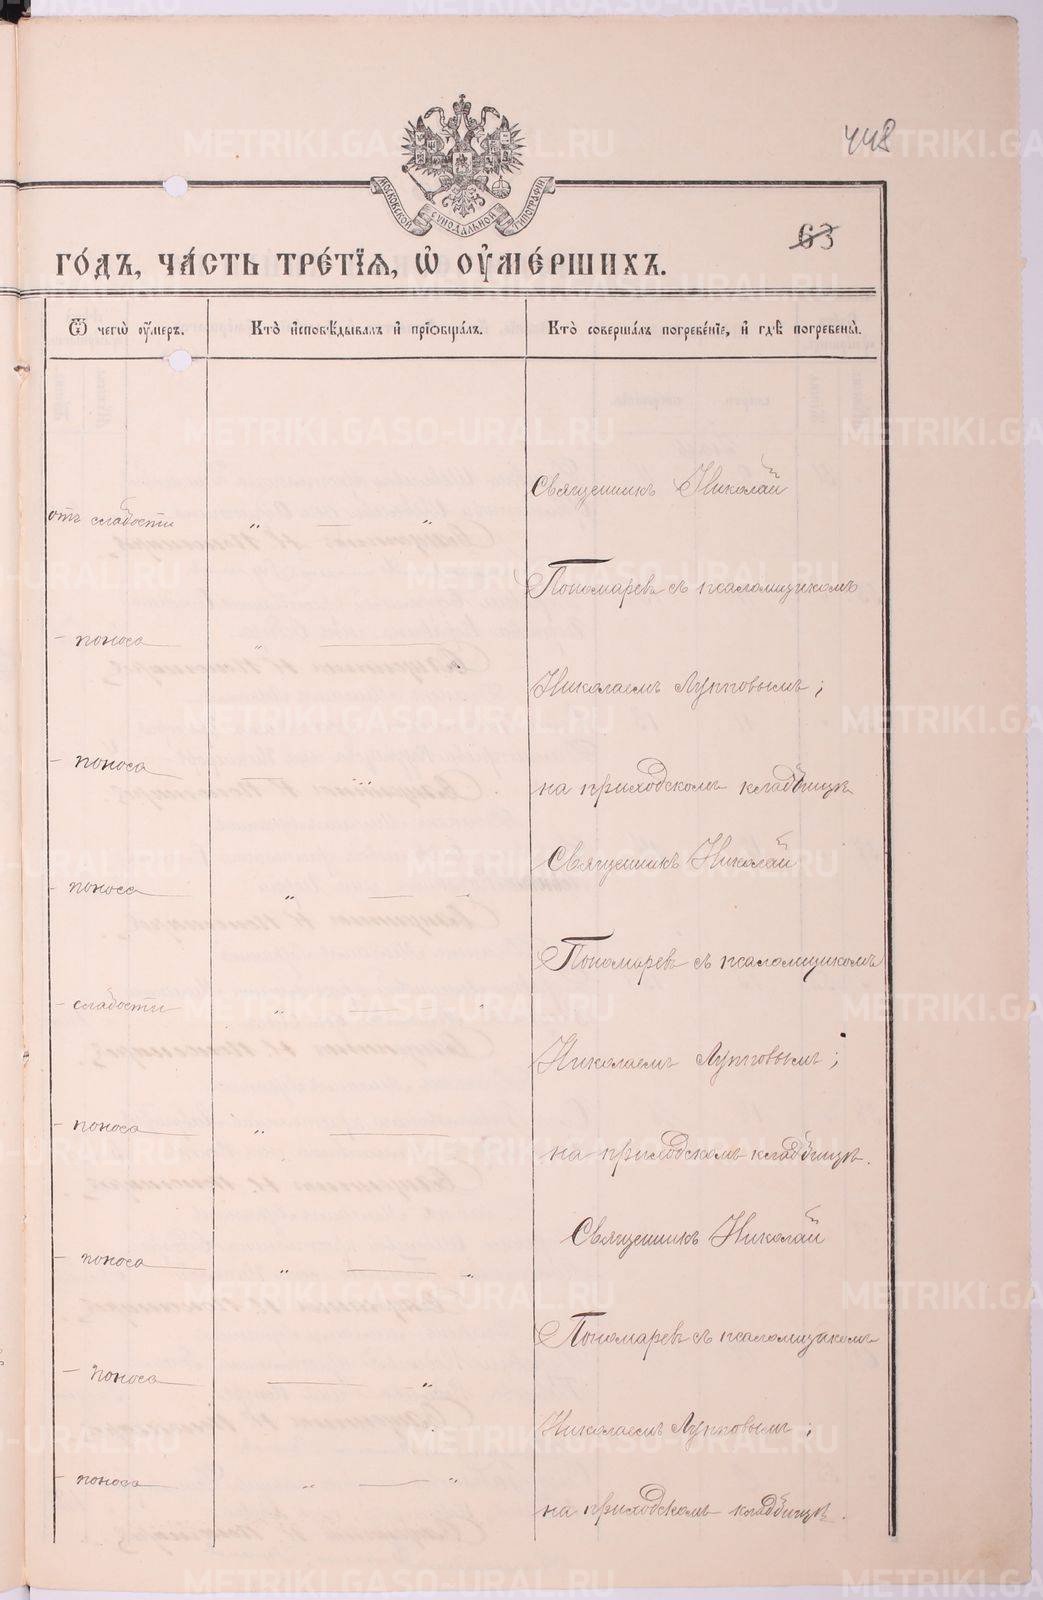 448
МОСКОВСКОЙ СУНОДАЛЬНОЙ ТИПОГРАФІИ
63
ГО́ДЪ, ЧА́СТЬ ТРЕ́ТІЯ, Ѡ ОУ҆МЕ́РШИХЪ.
Ѿ чегѡ̀ оу҆́меръ.
Кто̀ и҆сповѣ́дывалъ и҆ прїѡбща́лъ.
Кто̀ соверша́лъ погребе́нїе, и҆ гдѣ̀ погребены̀.
Священникъ Николай
отъ слабости „ — „
Пономаревъ съ псаломщикомъ
– поноса „ —
Николаемъ Лупповымъ;
– поноса — „
на приходскомъ кладбищѣ
Священникъ Николай
– поноса „ —
Пономаревъ съ псаломщикомъ
– слабости „ — „
Николаемъ Лупповымъ;
– поноса „ —
на приходскомъ кладбищѣ.
Священникъ Николай
– поноса „ — „
Пономаревъ съ псаломщикомъ
– поноса — „
Николаемъ Лупповымъ;
– поноса „ — „
на приходскомъ кладбищѣ.
METRIKI.GASO-URAL.RU